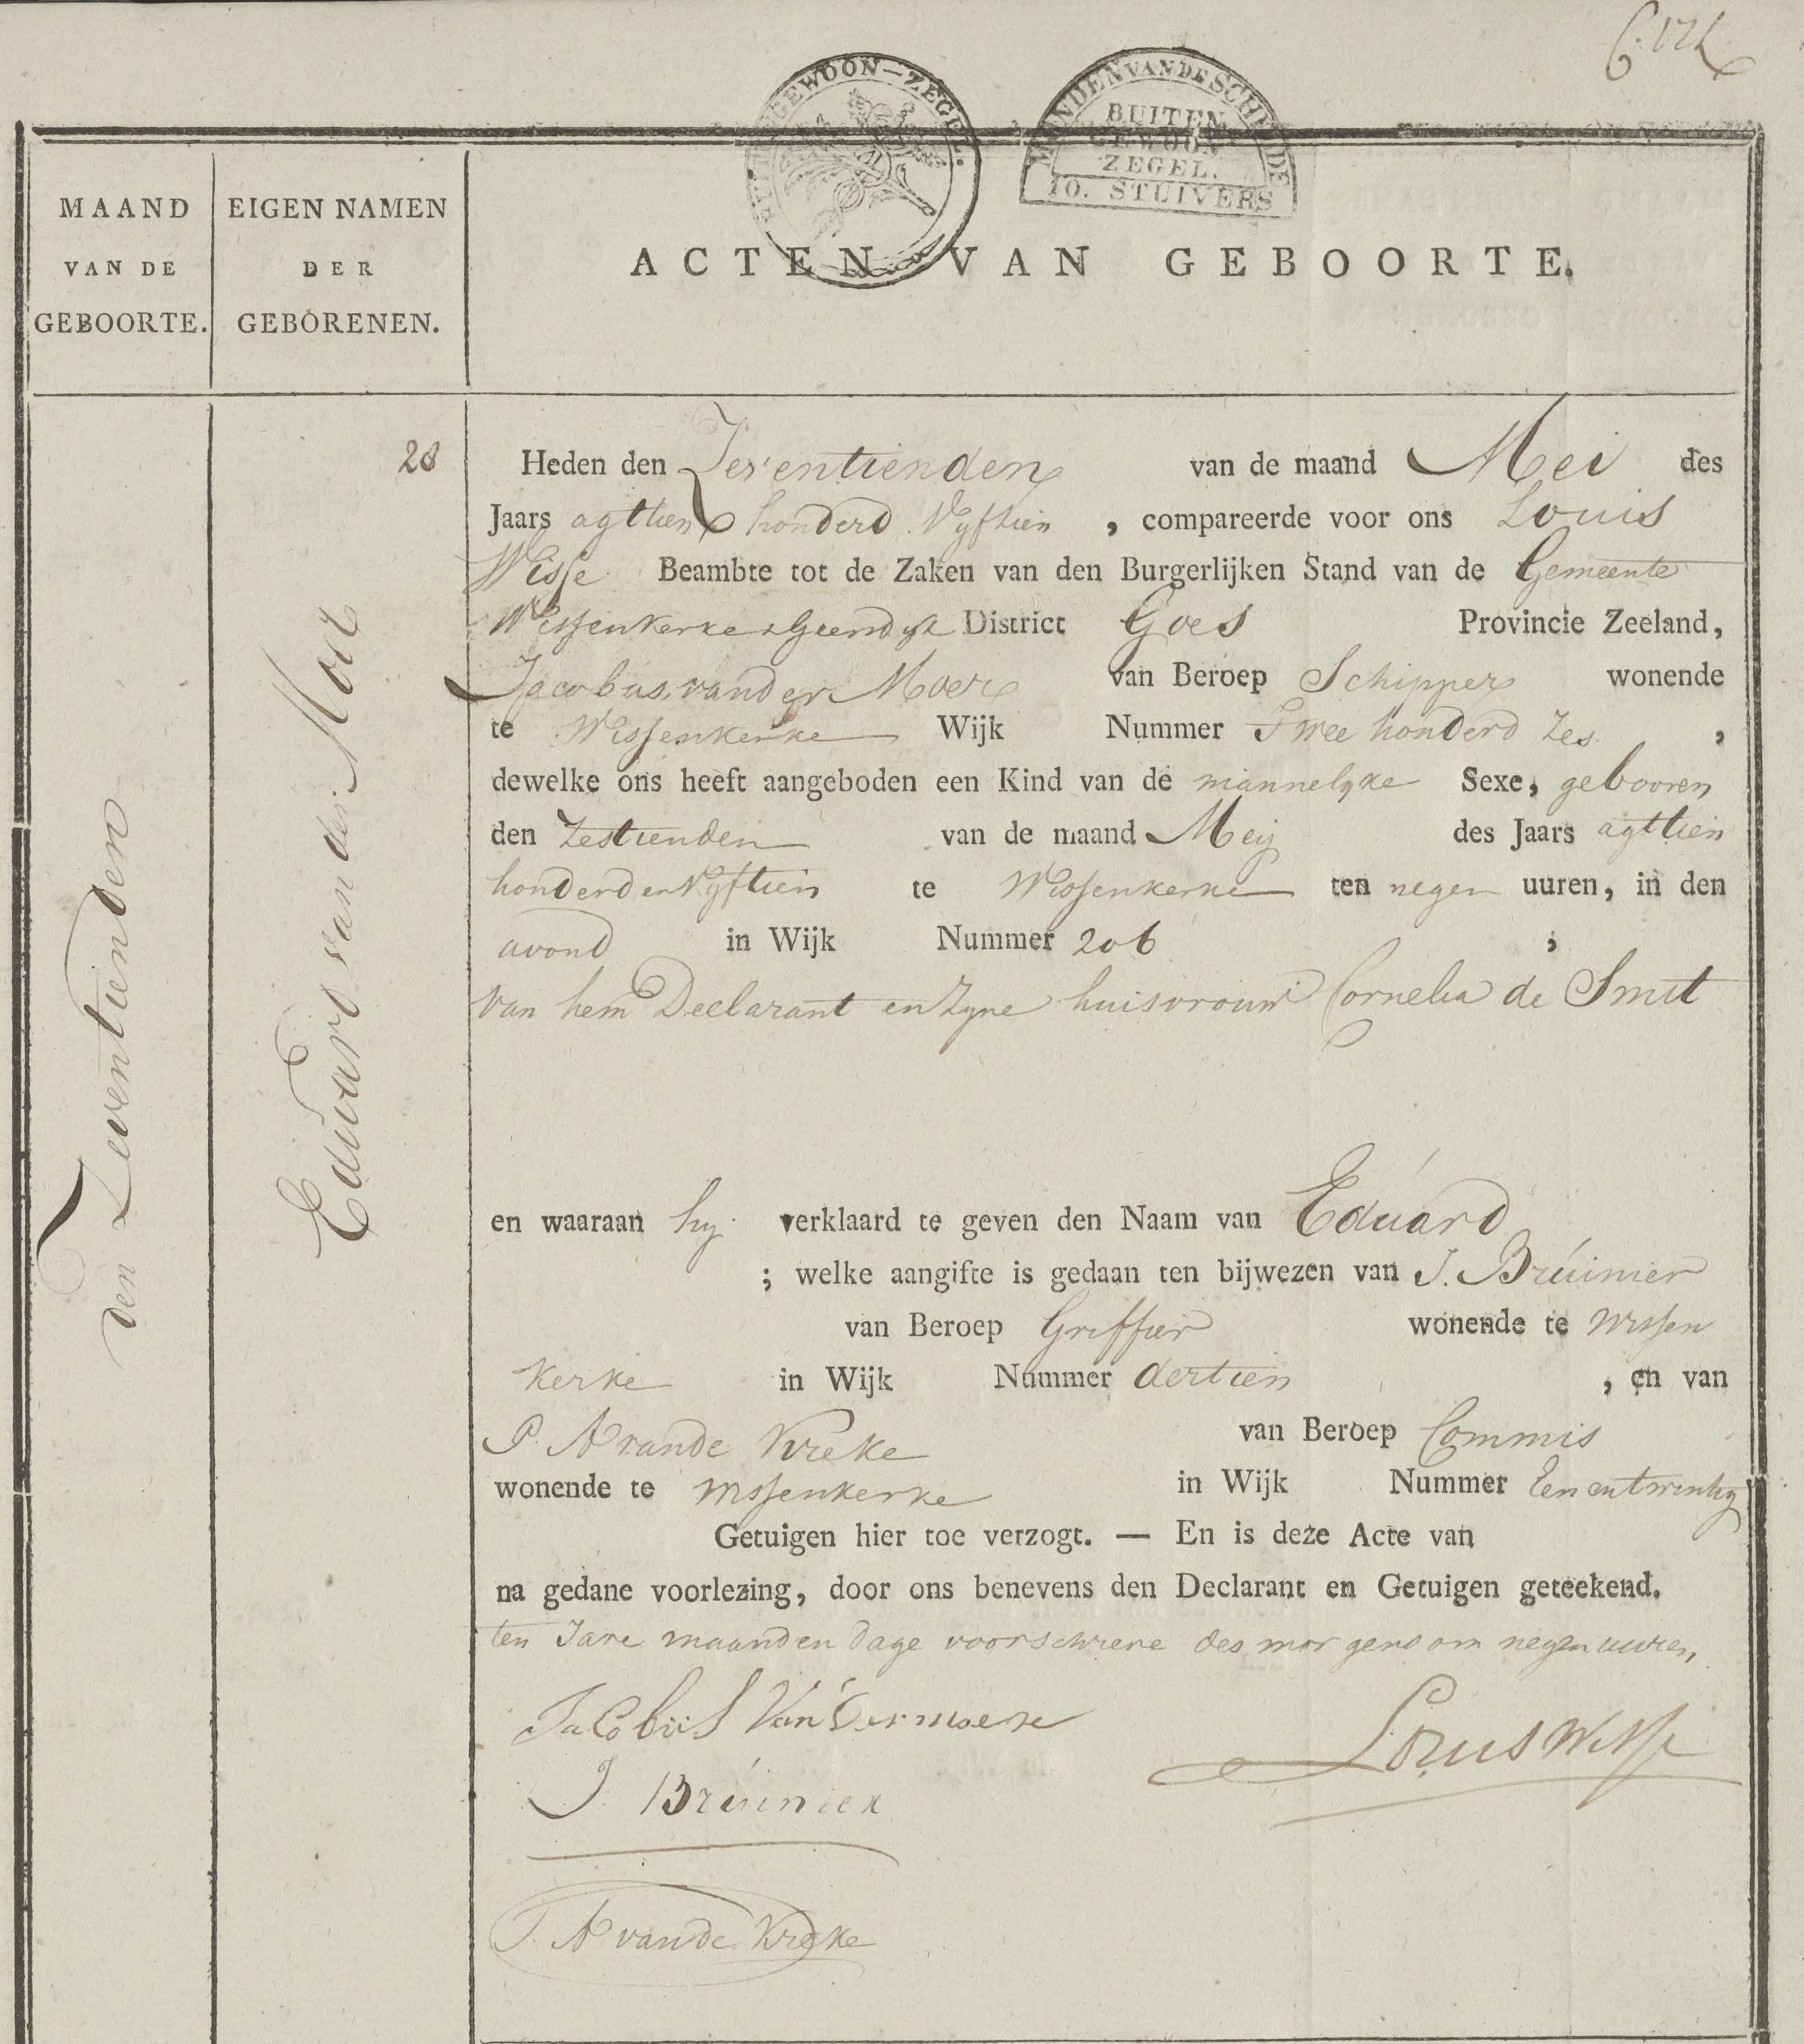 BUITENGEWOON-ZEGEL.
MONDEN VAN DE SCHELDE
BUITEN
GEWOON
ZEGEL.
10. STUIVERS
MAAND
VAN DE
GEBOORTE.
EIGEN NAMEN
DER
GEBORENEN.
ACTEN VAN GEBOORTE.
den Zeventienden
Eduard van der Moer
28
Heden den Zeventienden van de maand Mei des
Jaars agttien honderd Vyftien , compareerde voor ons Louis
Wisse Beambte tot de Zaken van den Burgerlijken Stand van de Gemeente
Wissenkerke & Geersdyk District Goes Provincie Zeeland,
Jacobus van der Moere van Beroep Schipper wonende
te Wissenkerke Wijk Nummer Twee honderd Zes ,
dewelke ons heeft aangeboden een Kind van de mannelyke Sexe, gebooren
den Zestienden van de maand Meij des Jaars agttien
honderd en Vyftien te Wissenkerke ten negen uuren, in den
avond in Wijk Nummer 206 ;
van hem Declarant en Zyne huisvrouw Cornelia de Smit
en waaraan hy verklaard te geven den Naam van Eduard
; welke aangifte is gedaan ten bijwezen van J. Bruinier
van Beroep Griffier wonende te Wissen
kerke in Wijk Nummer dertien , en van
P. A van de Kreke van Beroep Commis
wonende te Wissenkerke in Wijk Nummer Een en twintig
Getuigen hier toe verzogt. — En is deze Acte van
na gedane voorlezing, door ons benevens den Declarant en Getuigen geteekend.
ten Jare maand en dage voorschreve des morgens om negen uuren,
Jacobus Van der moere
Louis Wisse
J. Bruinier
P. A van de Kreke